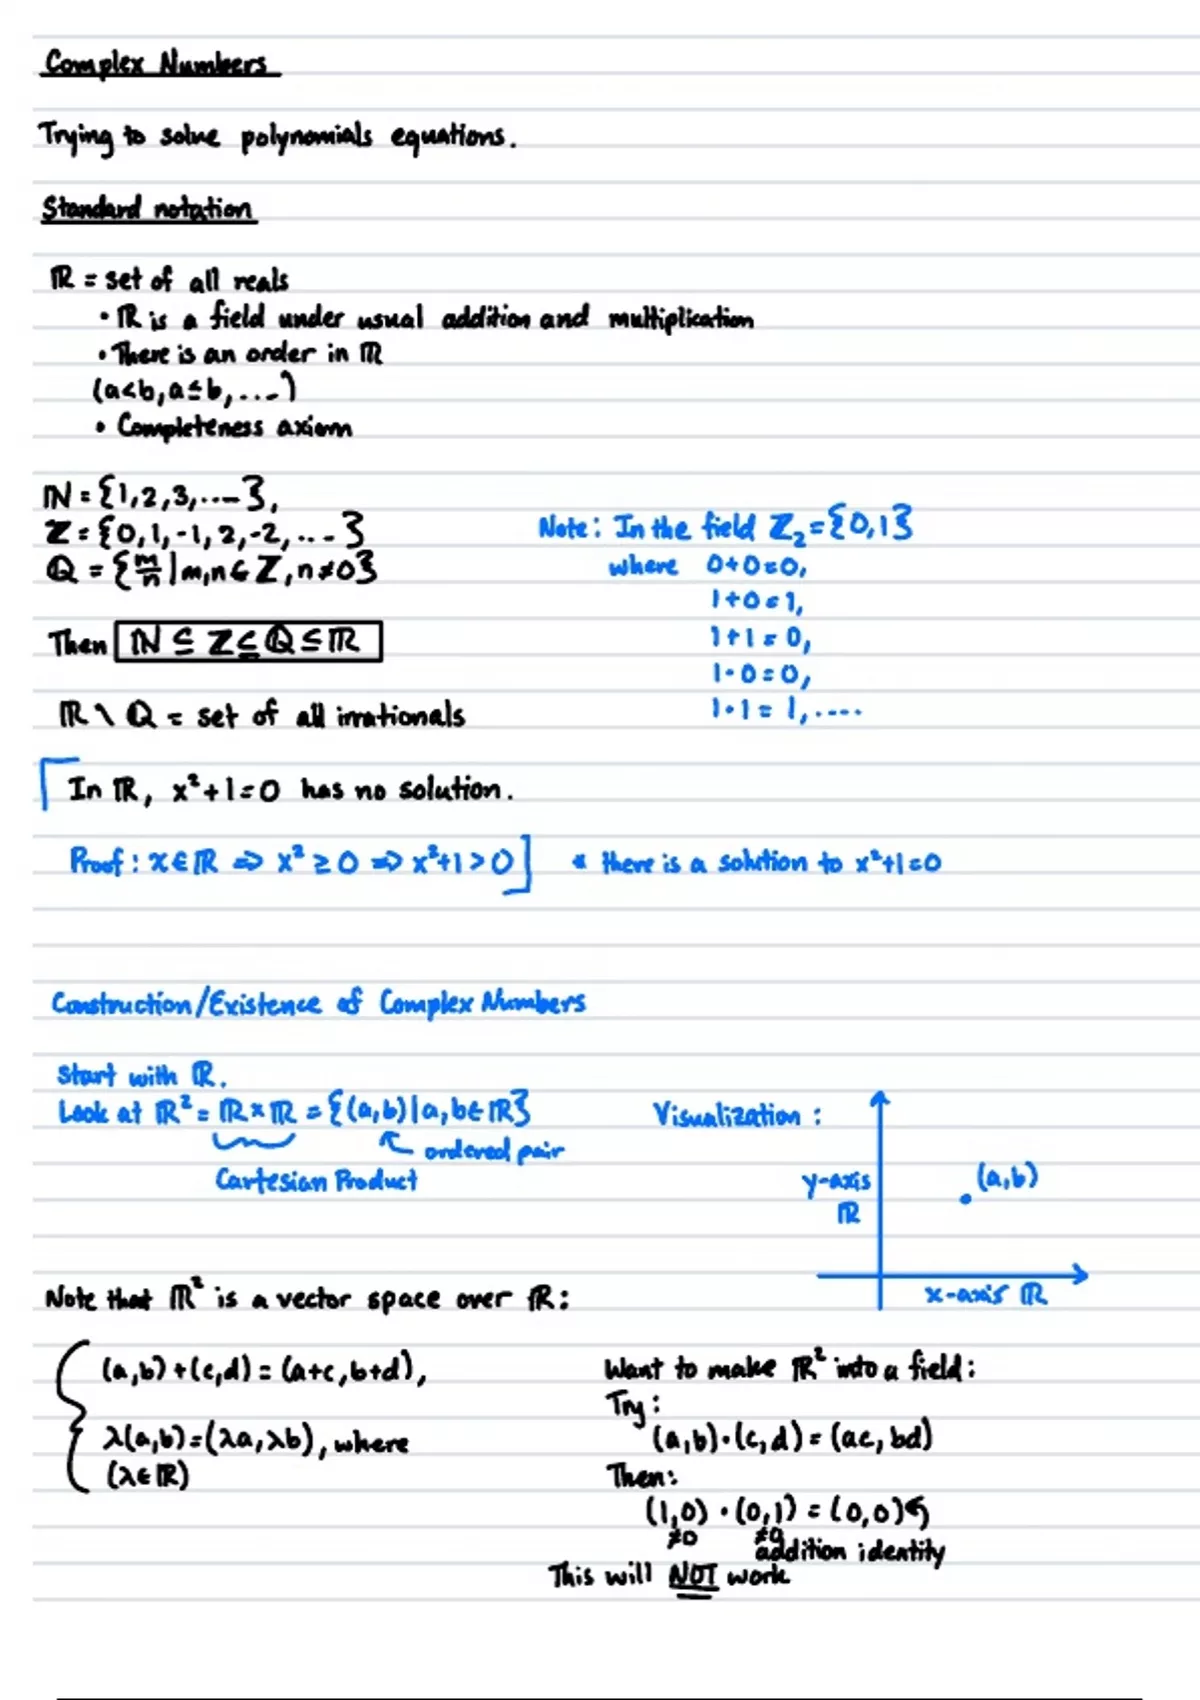 Complex Numbers
Trying to solve polynomials equations.
Standard notation
ℝ = set of all reals
• ℝ is a field under usual addition and multiplication
• There is an order in ℝ
(a<b, a≤b, ....)
• Completeness axiom
ℕ = {1,2,3,....},
ℤ = {0,1,-1,2,-2,....}
ℚ = {m/n | m,n ∈ ℤ, n≠0}
Note: In the field ℤ₂ = {0,1}
where 0+0=0,
1+0=1,
1+1=0,
1·0=0,
1·1=1,....
Then ℕ ⊆ ℤ ⊆ ℚ ⊆ ℝ
ℝ \ ℚ = set of all irrationals
In ℝ, x²+1=0 has no solution.
Proof: x∈ℝ ⇒ x² ≥ 0 ⇒ x²+1>0] * there is a solution to x²+1=0
Construction/Existence of Complex Numbers
Start with ℝ.
Look at ℝ² = ℝ×ℝ = {(a,b)|a,b∈ℝ}
ordered pair
Cartesian Product
Visualization:
y-axis
ℝ
(a,b)
x-axis ℝ
Note that ℝ² is a vector space over ℝ:
(a,b)+(c,d)=(a+c,b+d),
λ(a,b)=(λa,λb), where
(λ∈ℝ)
Want to make ℝ² into a field:
Try:
(a,b)·(c,d)=(ac,bd)
Then:
(1,0)·(0,1)=(0,0)
≠0 ≠0
addition identity
This will NOT work